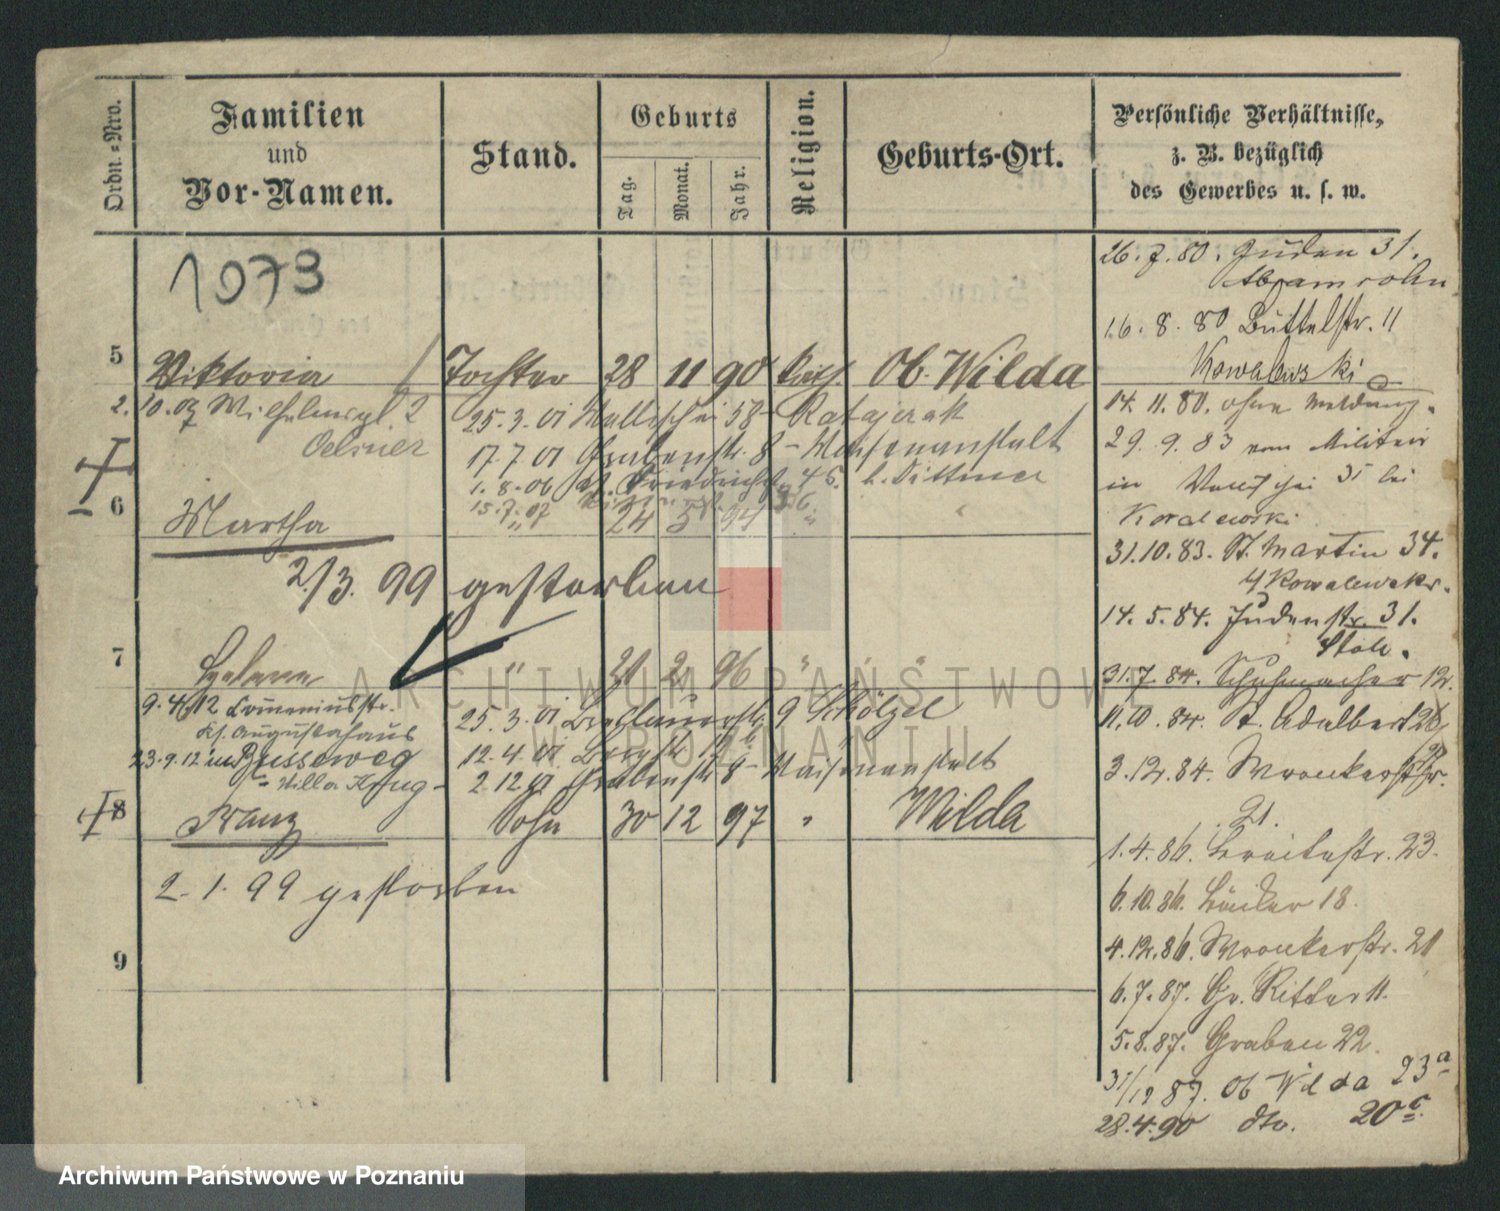 Ordn.=Nro.
Familien
und
Vor-Namen.
Stand.
Geburts
Tag.
Monat.
Jahr.
Religion.
Geburts-Ort.
Persönliche Verhältnisse,
z. B. bezüglich
des Gewerbes u. s. w.
1073
5 Viktoria Tochter 28 11 90 kath. Ob. Wilda
2. 10.07 Wilhelmspl. 2
Oelsner
25.3.01 Wallischei 58 - Ratajczak
17.7.01 Grabenstr. 8 - Waisenanstalt
1.8.06 Friedrichst. 46. b. Dittmer
15.7.07
6 Martha " 24 5 94 " "
2/3. 99 gestorben
7 Helene " 21 2 96 " "
9.4.12 Comeniusstr.
Kf. Augustahaus
23.9.12 in Busseweg
Villa Krug -
25.3.01 Breslauerstr. 9 Schölzel
12.4.01 Bergstr. 12b
2.12.01 Grabenstr. 8 - Waisenanstalt
8 Franz Sohn 30 12 97 " Wilda
2. 1. 99 gestorben
9
26.7.80. Juden 31.
Abramsohn
16.8.80 Büttelstr. 11
Kowalewski
14.11.80. ohne Meldung.
29.9.83 vom Militair
in Wallischei 35 bei
Kowalewski
31.10.83. St. Martin 34.
Kowalewski.
14.5.84. Judenstr. 31.
31.7.84. Schuhmacher 12.
11.10.84. St. Adalbert 28
3.12.84. Wronkerstr.
21.
1.4.86. Breitestr. 23.
6.10.86. Bäcker 18.
4.12.86. Wronkerstr. 21
6.7.87. Gr. Ritter 11.
5.8.87. Graben 22.
31/12 87. Ob Wilda 23a
28.4.90 dto. 20c.
ARCHIWUM PAŃSTWOWE
W POZNANIU
Archiwum Państwowe w Poznaniu